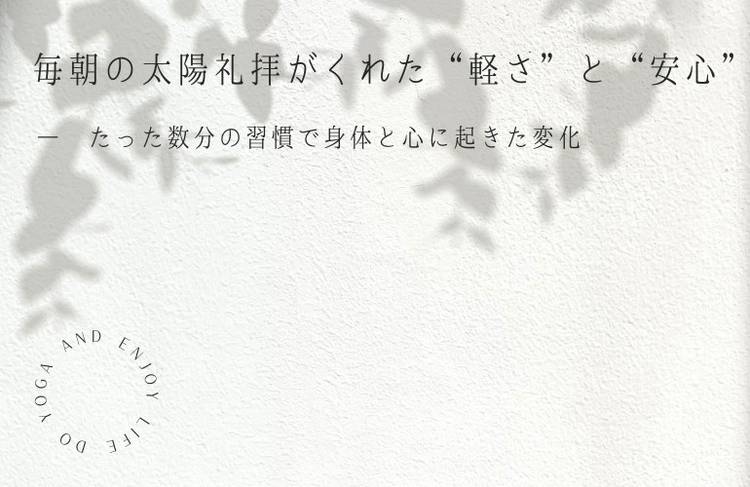 毎朝の太陽礼拝がくれた“軽さ”と“安心”
― たった数分の習慣で身体と心に起きた変化
DO YOGA AND ENJOY LIFE